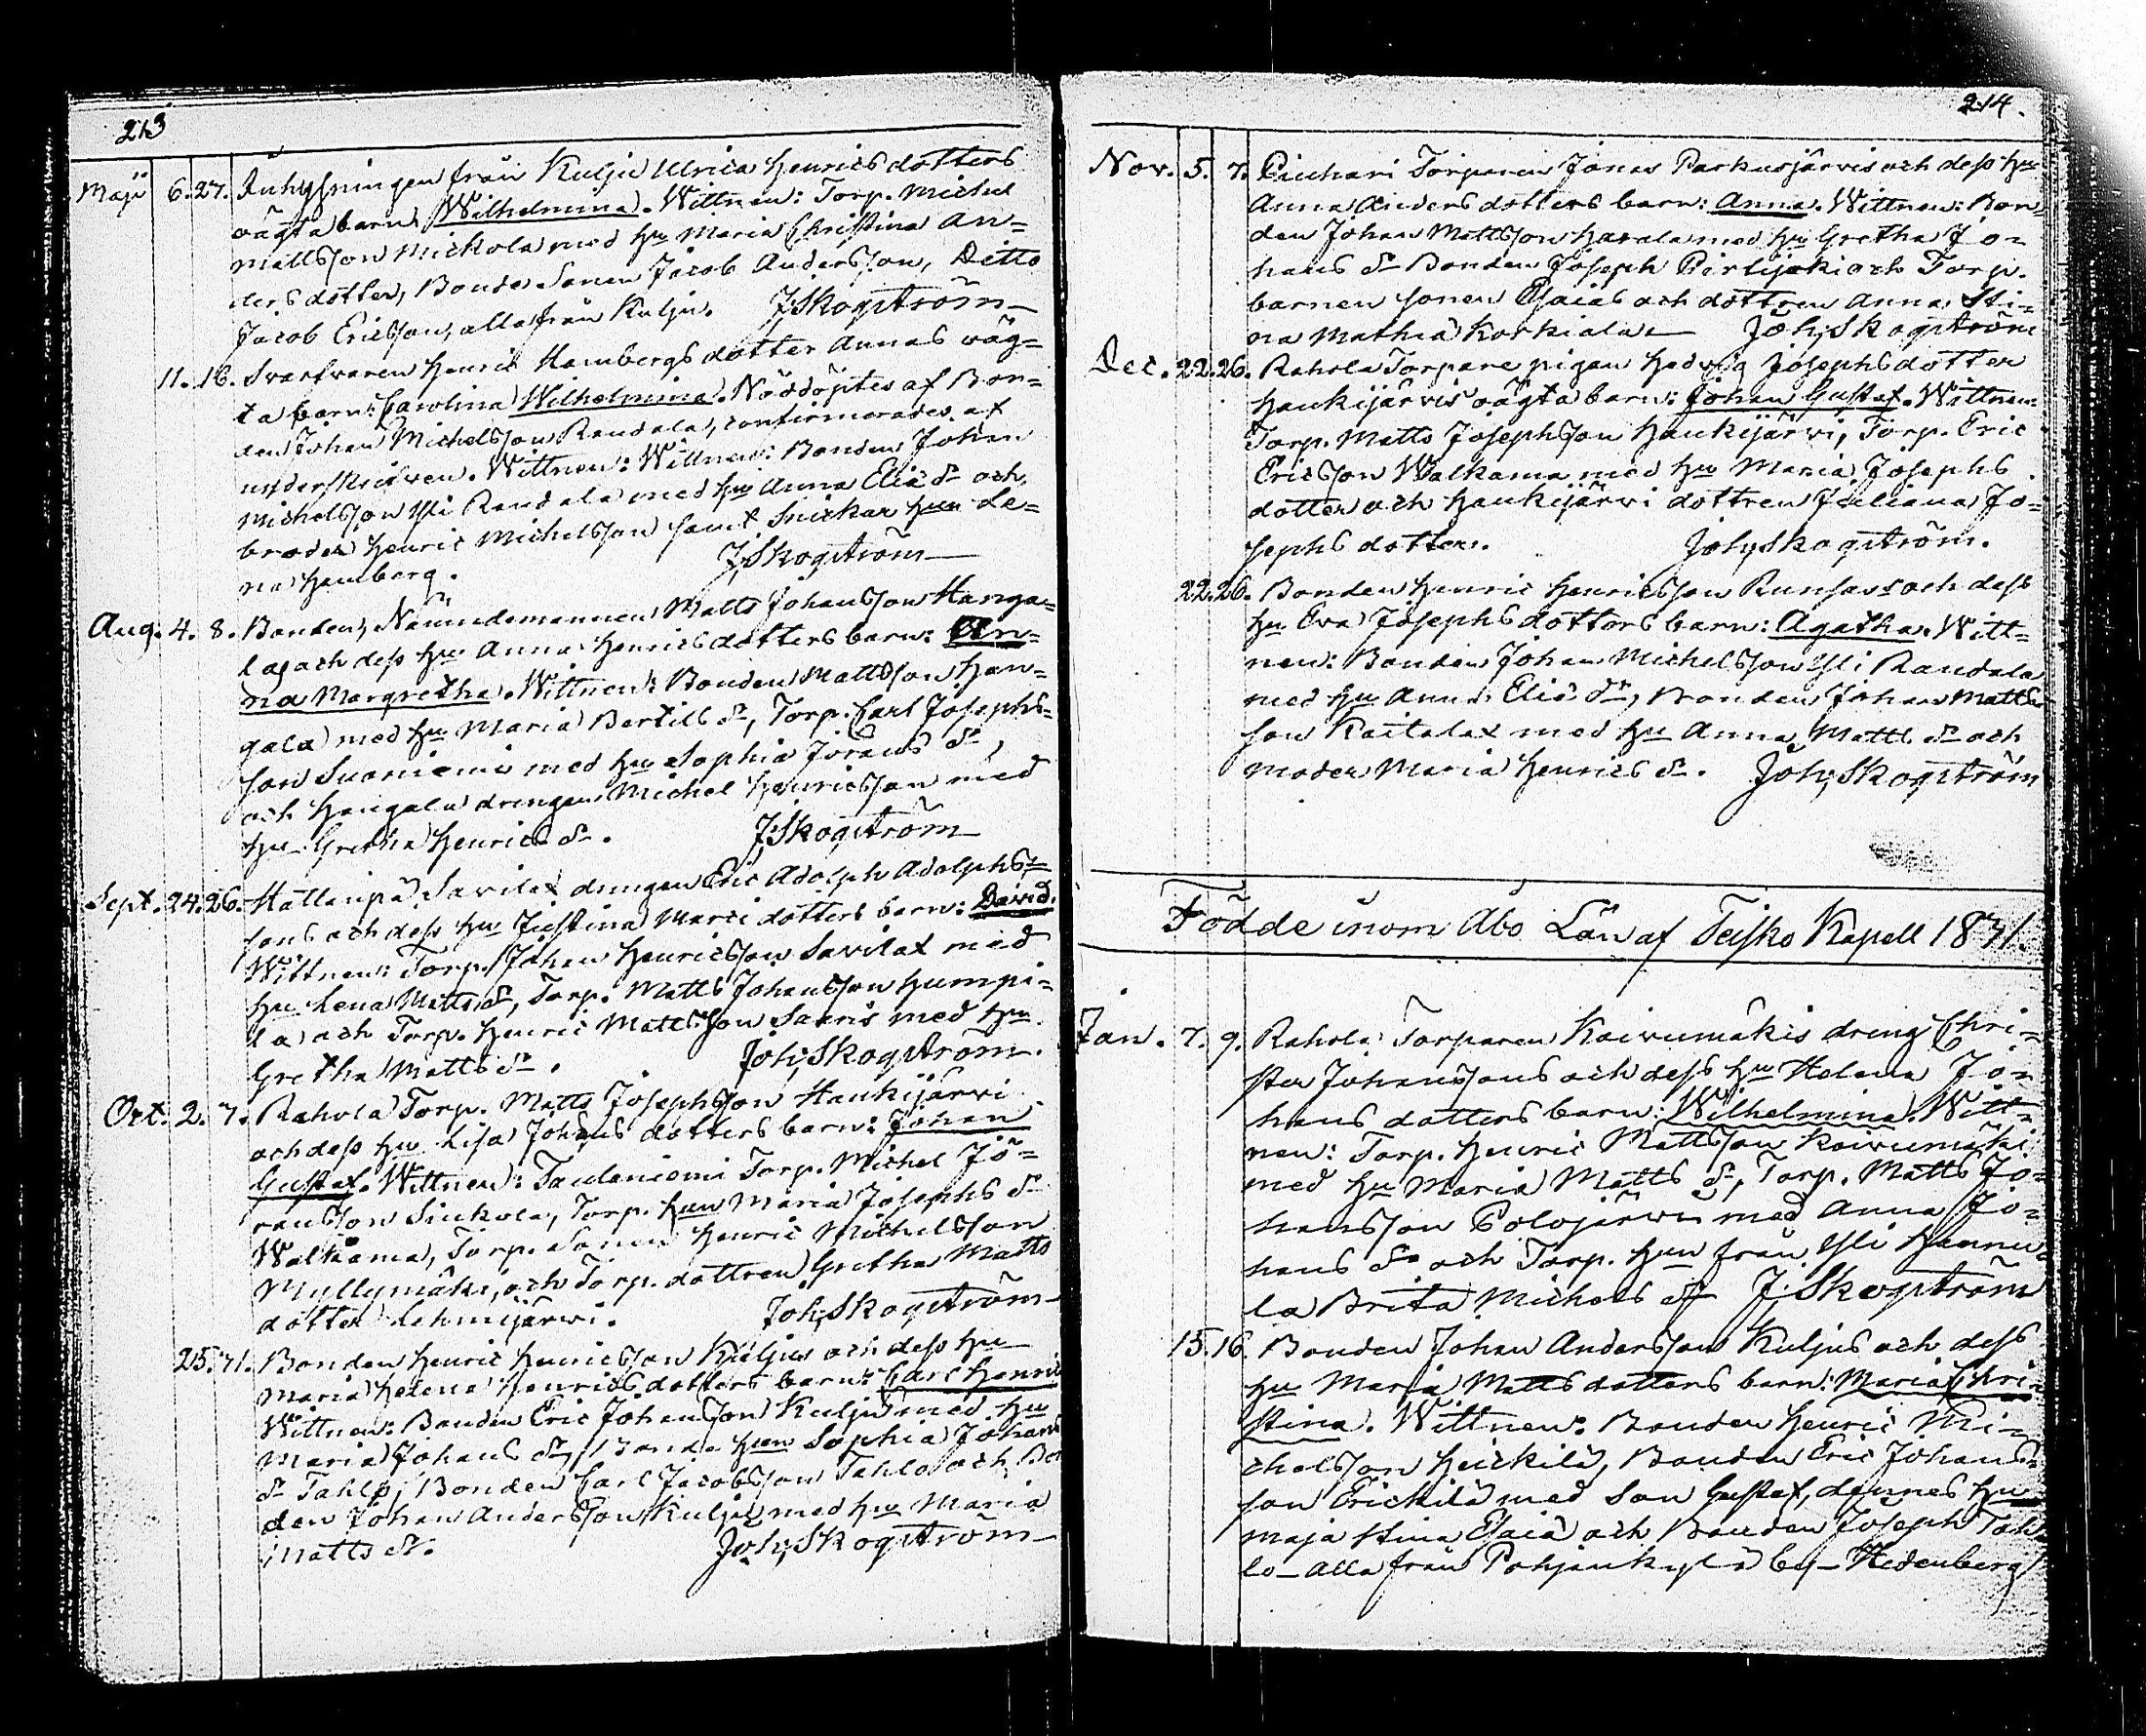 213
Maji 6. 27. Inhysingen från Kulju Ulrica Henricsdotters
oägta barn Wilhelmina. Wittnen: Torp. Michel
Mattsson Mickola med hu Maria Christina An=
dersdotter, Bonde Sonen Jacob Andersson, Ditto
Jacob Ericsson, alla från Kulju. J:Skogström
11. 16. Svarfvaren Henric Hambergs dotter Annas oäg=
ta barn: Carolina Wilhelmina. Nöddöptes af Bon=
den Johan Michelsson Randala, confirmerades af
underskrifven. Wittnen: Wittnen: Bonden Johan
Michelsson Yli Randala med hu Anna Eliæ dr och
broder Henric Michelsson samt Snickar hun Le=
na Hamberg. J:Skogström
Aug. 4. 8. Bonden, Nämndemannen Matts Johansson Hanga=
las och dess hu Anna Henricsdotters barn: An=
na Margretha. Wittnen: Bonden Mattsson Han=
gala med hu Maria Bertils dr, Torp. Carl Josephs=
son Suoniemi med hu Sophia Jörans dr,
och Hangala drengen Michel Henricsson med
hu Gretha Henrics dr. J:Skogström
Sept. 24. 26. Hattanpä Savilax drengen Eric Adolph Adolphs=
sons och dess hu Justina Marci dotters barn: David.
Wittnen: Torp. Johan Henricsson Savilax med
hu Lena Matts dr, Torp. Matts Johansson Humpi=
la och Torp. Henric Mattsson Saaris med hu
Gretha Matts dr. Joh;Skogström.
Oct. 2. 7. Rahola Torp. Matts Josephsson Haukijärvi
och dess hu Lisa Johans dotters barn: Johan
Gustaf. Wittnen: Taulaniemi Torp. Michel Jö=
ransson Siukola, Torp. hun Maria Josephs dr
Walkama, Torp. Sonen Henric Michelsson
Myllymäki, och Torp. dottren Gretha Matts
dotter Lehmijärwi. Joh;Skogström
25. 31. Bonden Henric Henricsson Kuljus och dess hu
Maria Helena Henricsdotters barn: Carl Henric
Wittnen: Bonden Eric Johansson Kulju med hu
Maria Johans dr, Bonde hun Sophia Johans
dr Tahlo, Bonden Carl Jacobsson Tahlo och Bon
den Johan Andersson Kulju med hu Maria
Matts dr. Joh;Skogström
214.
Nov. 5. 7. Torparen Jonas Parkusjärvis och dess hu
Anna Andersdotters barn: Anna. Wittnen: Bon=
den Johan Mattsson Harala med hu Gretha Jo=
hans dr Bonden Joseph och Torp.
barnen sonen Esaias och dottren Anna Sti=
na Mathiæ Korkiala. Joh;Skogström
Dec. 22. 26. Rahola Torpare pigan Hedvig Josephsdotter
Haukijärvis oägta barn: Johan Gustaf. Wittnen:
Torp. Matts Josephsson Haukijärvi, Torp. Eric
Ericsson Walkama med hu Maria Josephs
dotter och Haukijärvi dottren Juliana Jo=
sephs dotter. Joh;Skogström.
22. 26. Bonden Henric Henricsson Runsas och dess
hu Eva Josephsdotters barn: Agatha. Witt=
nen: Bonden Johan Michelsson Yli Randala
med hu Anna Eliæ dr, Bonden Johan Matts
son Kaitalax med hu Anna Matts dr och
moder Maria Henrics dr. Joh;Skogström
Födde inom Åbo Län af Teisko Kapell 1831.
Jan. 7. 9. Rahola Torparen Koivumäkis dreng Chri=
ster Johanssons och dess hu Helena Jo=
hans dotters barn: Wilhelmina. Witt=
nen: Torp. Henric Mattsson Koivumäki
med hu Maria Matts dr, Torp. Matts Jo=
hansson Polojärwi med Anna Jo=
hans dr och Torp. hun från Yli Hannu=
la Brita Michels dr J;Skogström
15. 16. Bonden Johan Andersson Kuljus och dess
hu Maria Mattsdotters barn: Maria Chri=
stina. Wittnen: Bonden Henric Mi=
chelsson Heickilä, Bonden Eric Johans=
son Erickilä med Son Gustaf, dennes hu
Maja Stina Esaiæ och Bonden Joseph Tah=
lo – alla från Pohjankylä by – Hedenberg